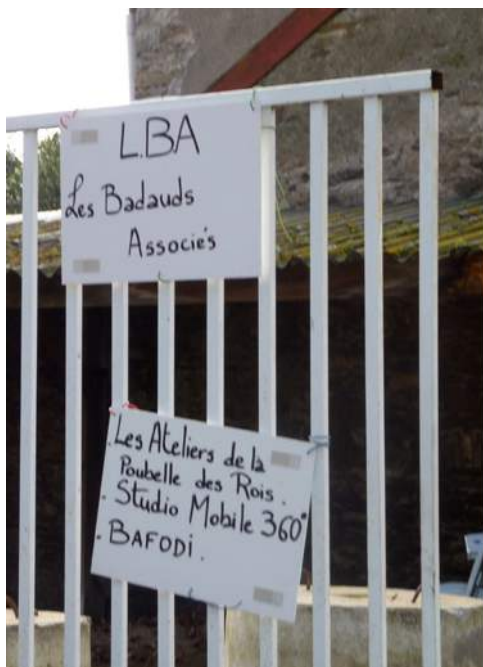 L.BA
Les Badauds
Associés
. Les Ateliers de la
Poubelle des Rois .
. Studio Mobile 360°
. BAFODI .